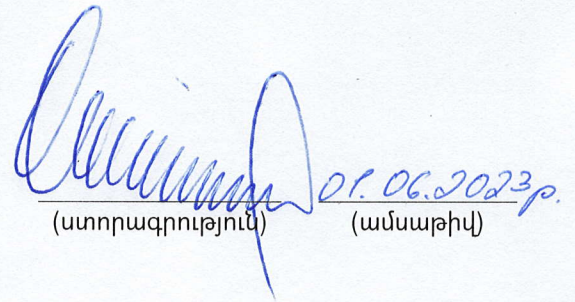 01.06.2023 р.
(ստորագրություն) (ամսաթիվ)